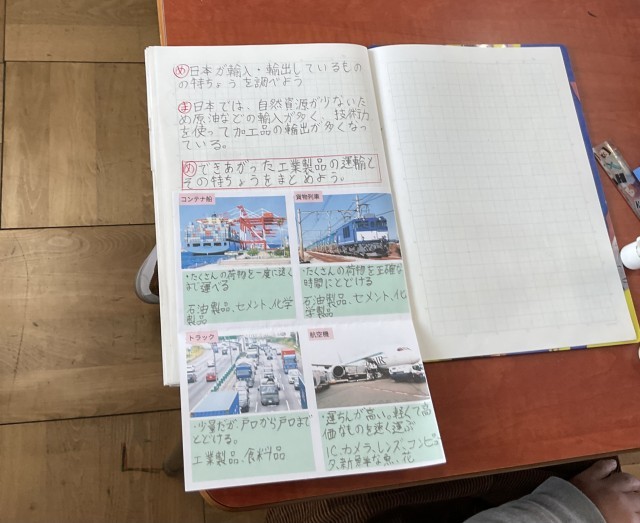 め日本が輸入・輸出しているもの
の特ちょうを調べよう
ま日本では、自然資源が少ないた
め原油などの輸入が多く、技術力
を使って加工品の輸出が多くなっ
ている。
めできあがった工業製品の運輸と
その特ちょうをまとめよう。
コンテナ船
・たくさんの荷物を一度に遠く
まで運べる
石油製品、セメント、化学
製品
貨物列車
・たくさんの荷物を正確な
時間にとどける
石油製品、セメント、化
学製品
トラック
・少量だが戸口から戸口まで
とどける。
工業製品、食料品
航空機
・運ちんが高い。軽くて高
価なものを速く運ぶ
IC、カメラ、レンズ、コンピュー
タ、新鮮な魚、花